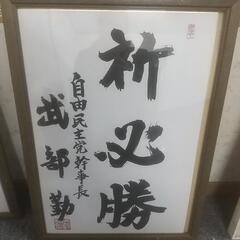 祈必勝
自由民主党幹事長
武部勤